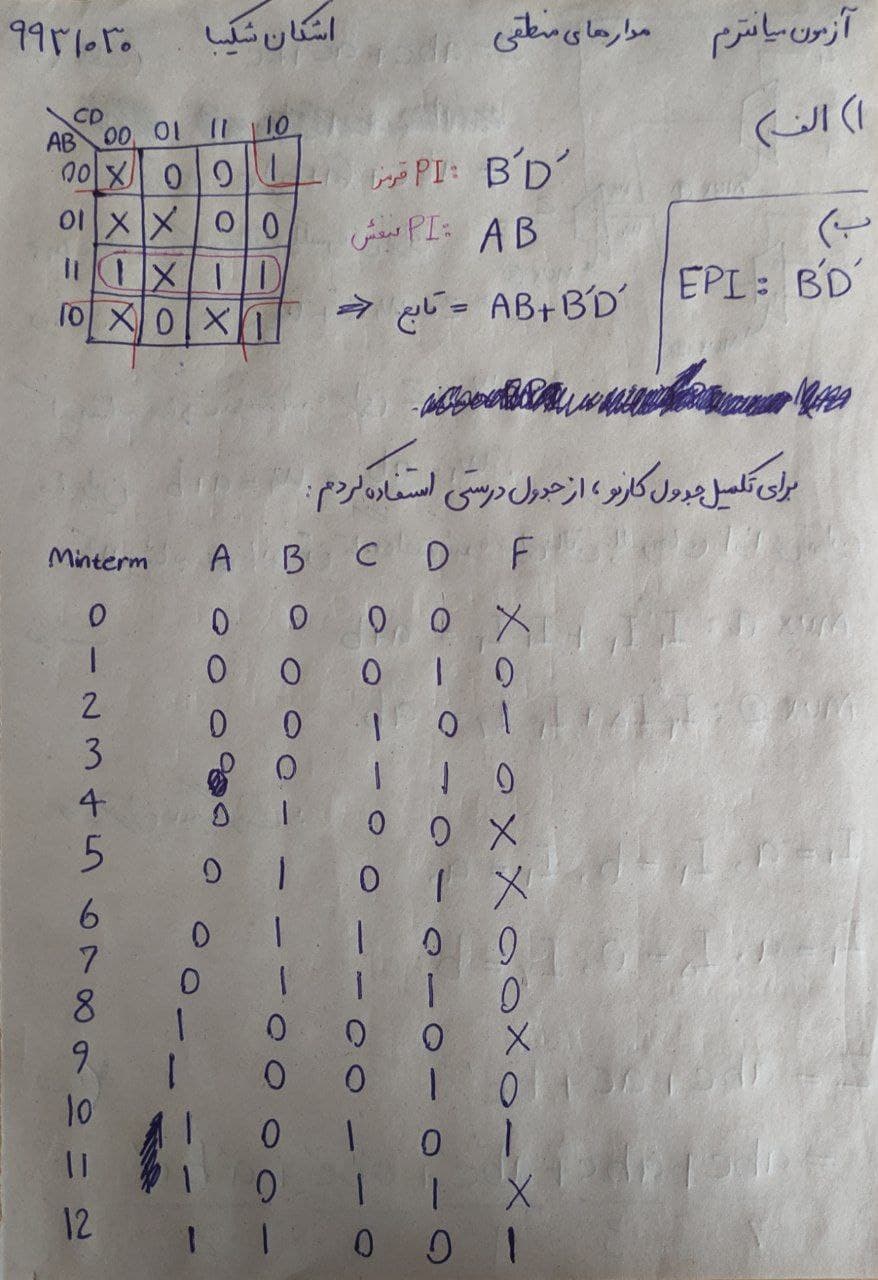 آزمون میانترم مدارهای منطقی اشکان شکیبا 9931030
1) الف)
CD
AB 00 01 11 10
00 X 0 0 1
01 X X 0 0
11 1 X 1 1
10 X 0 X 1
PI قرمز: B'D'
PI بنفش: AB
⇒ تابع = AB+B'D'
ب)
EPI: B'D'
برای تکمیل جدول کارنو، از جدول درستی استفاده کردم:
Minterm A B C D F
0 0 0 0 0 X
1 0 0 0 1 0
2 0 0 1 0 1
3 0 0 1 1 0
4 0 1 0 0 X
5 0 1 0 1 X
6 0 1 1 0 0
7 0 1 1 1 0
8 1 0 0 0 X
9 1 0 0 1 0
10 1 0 1 0 1
11 1 0 1 1 X
12 1 1 0 0 1